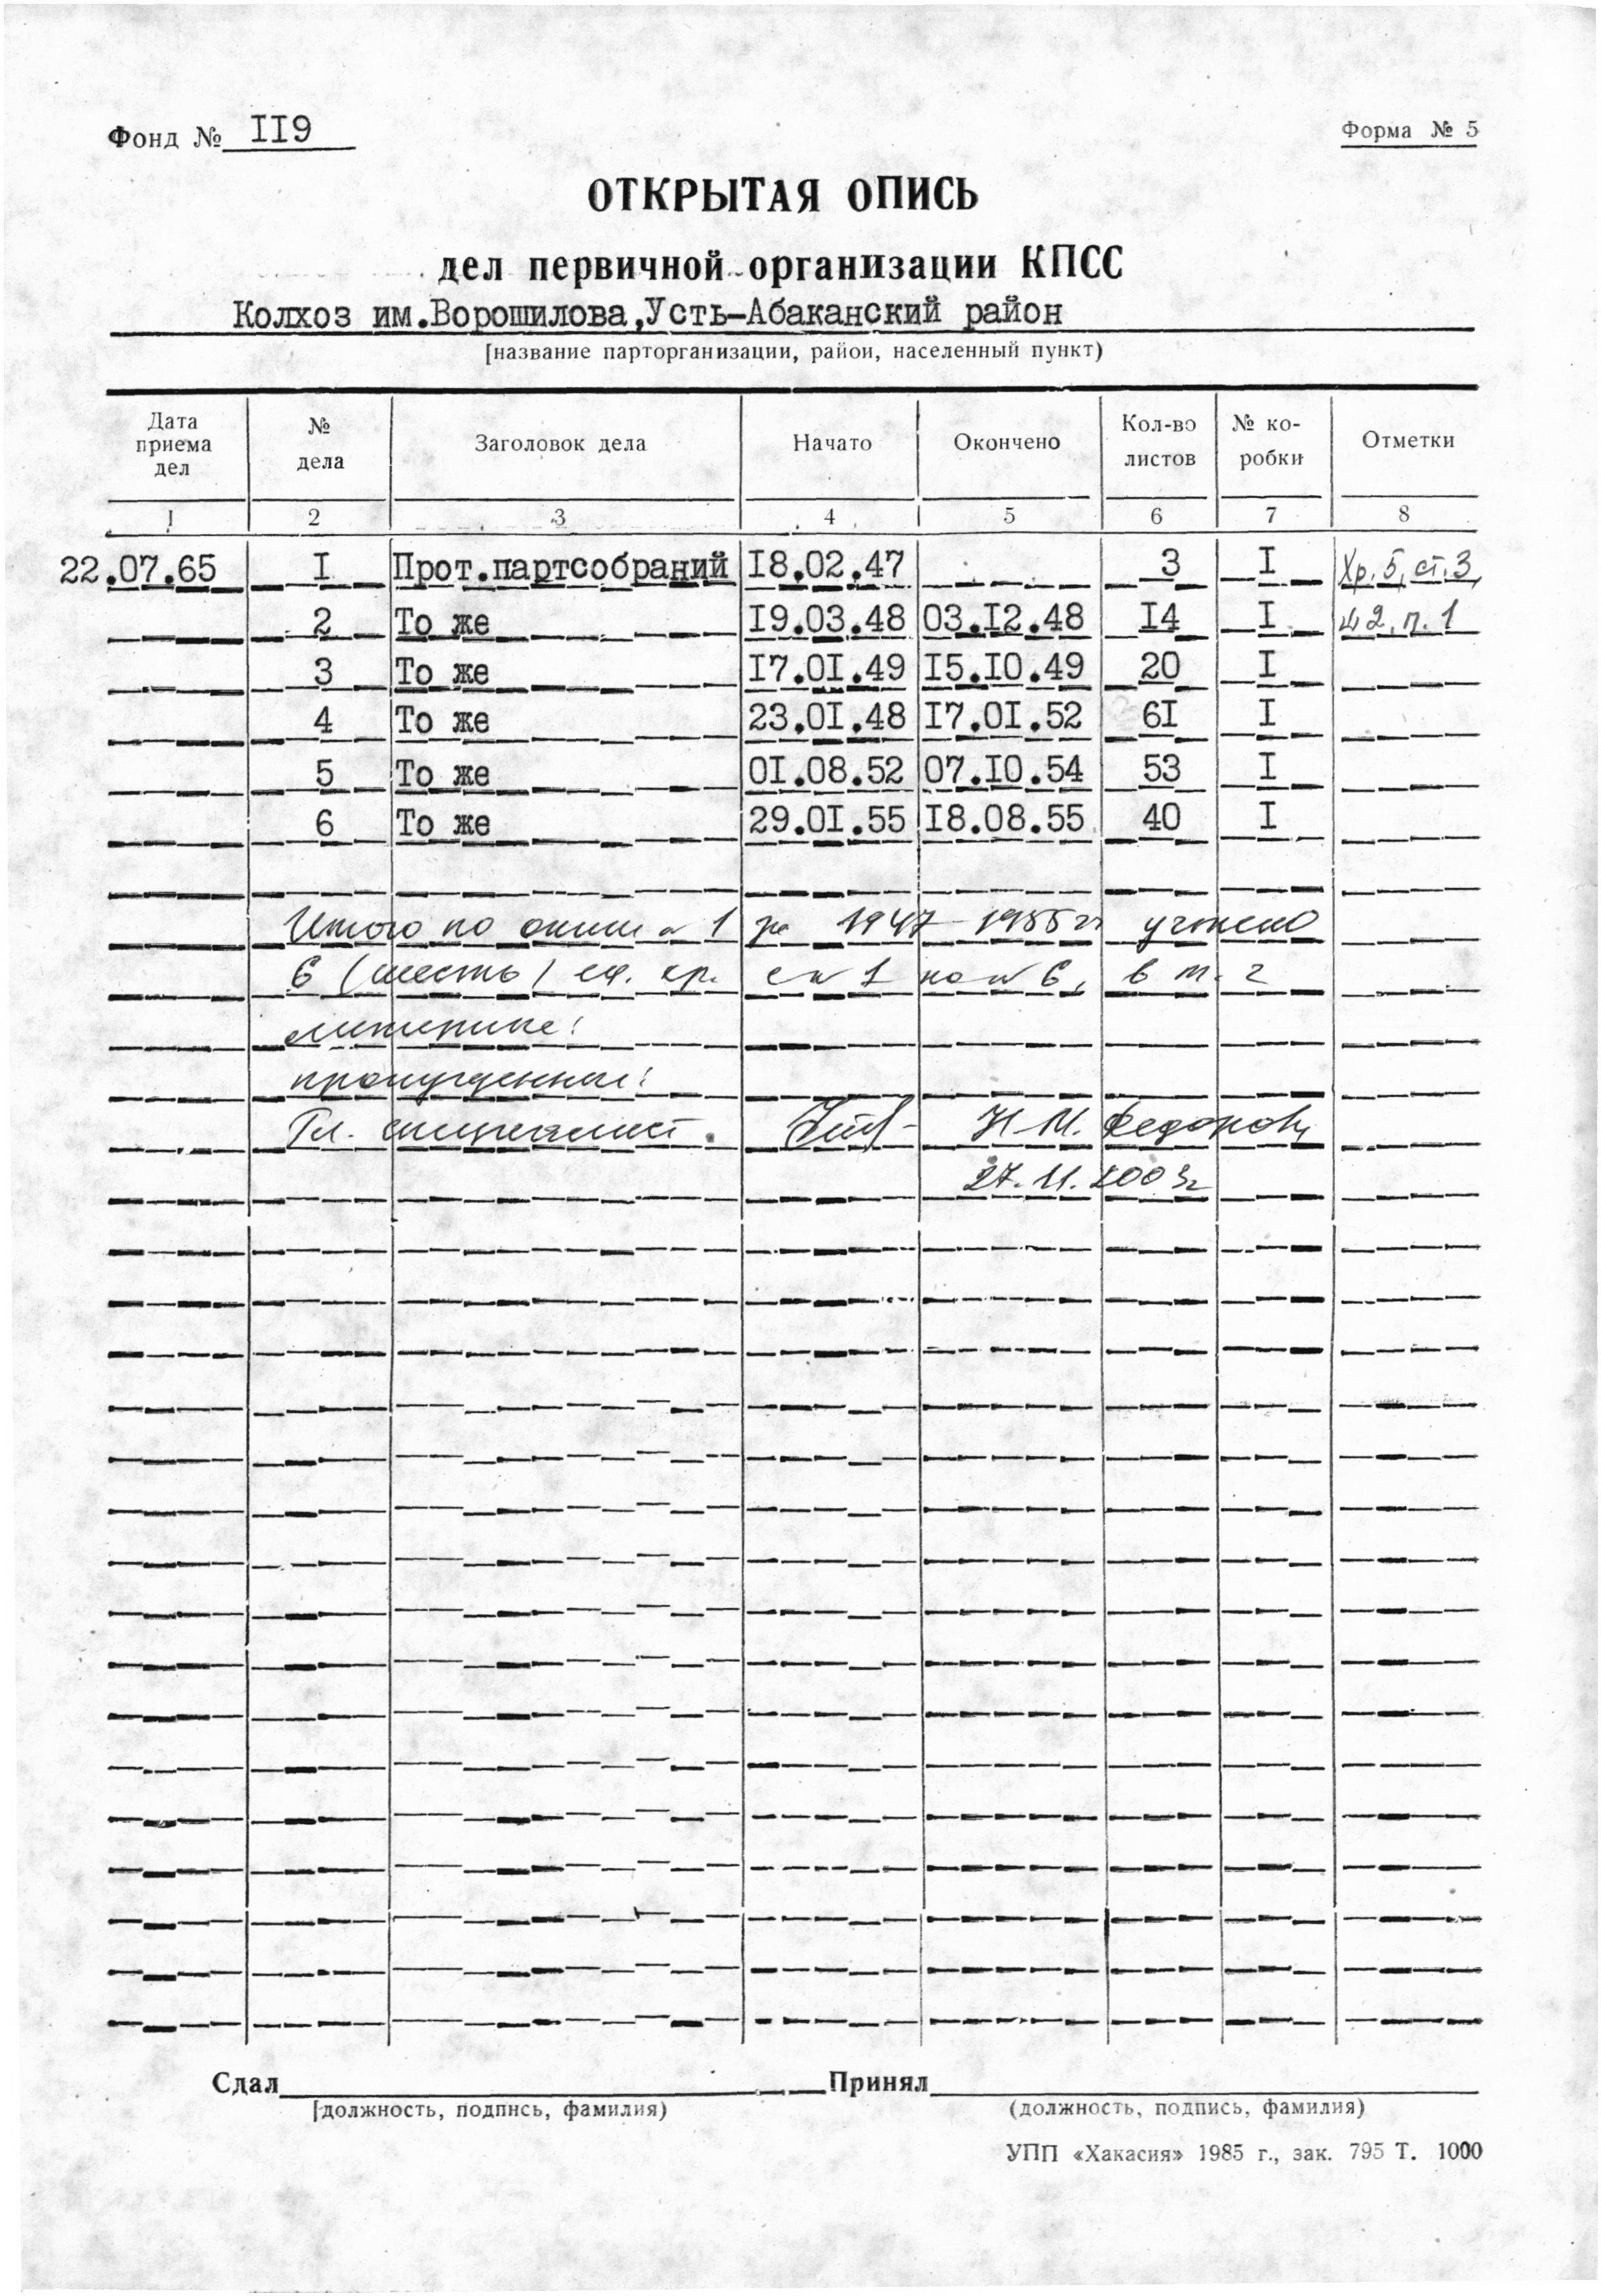 Фонд № II9
Форма № 5
ОТКРЫТАЯ ОПИСЬ
дел первичной организации КПСС
Колхоз им.Ворошилова,Усть-Абаканский район
[название парторганизации, район, населенный пункт)
Дата приема дел № дела Заголовок дела Начато Окончено Кол-во листов № ко-робки Отметки
1 2 3 4 5 6 7 8
22.07.65 I Прот.партсобраний I8.02.47 3 I Хр. 5, ст. 3,
2 То же I9.03.48 03.I2.48 I4 I ш 2, п. 1
3 То же I7.0I.49 I5.I0.49 20 I
4 То же 23.0I.48 I7.0I.52 6I I
5 То же 0I.08.52 07.I0.54 53 I
6 То же 29.0I.55 I8.08.55 40 I
Итого по описи № 1 за 1947-1955 гг учтено
6 (шесть) ед. хр. с № 1 по № 6, в т. ч
литерные:
пропущенные:
Гл. специалист. Н. М. Федоров
27.11.2003г
Сдал Принял
[должность, подпись, фамилия) (должность, подпись, фамилия)
УПП «Хакасия» 1985 г., зак. 795 Т. 1000